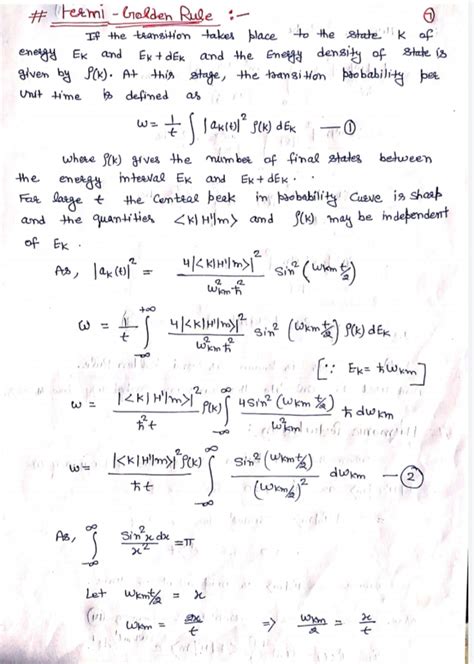 # Fermi - Golden Rule :-
7
If the transition takes place to the state K of
energy EK and EK+dEK and the Energy density of state is
given by ρ(K). At this stage, the transition probability per
unit time is defined as
ω = 1/t ∫ |aK(t)|² ρ(K) dEK — ①
where ρ(K) gives the number of final states between
the energy interval EK and EK+dEK.
For large t the central peak in probability curve is sharp
and the quantities <K|H'|m> and ρ(K) may be independent
of EK.
As, |aK(t)|² = 4|<K|H'|m>|² / ω²Km ħ² Sin² (ωKm t/2)
ω = 1/t ∫_{-∞}^{+∞} 4|<K|H'|m>|² / ω²Km ħ² Sin² (ωKm t/2) ρ(K) dEK
[∵ EK = ħωKm]
ω = |<K|H'|m>|² / ħ²t ρ(K) ∫_{-∞}^{∞} 4Sin² (ωKm t/2) / ω²Km ħ dωKm
ω = |<K|H'|m>|² ρ(K) / ħt ∫_{-∞}^{∞} Sin² (ωKm t/2) / (ωKm/2)² dωKm — ②
As, ∫_{-∞}^{∞} Sin²x dx / x² = π
Let ωKm t/2 = x
ωKm = 2x/t ⇒ ωKm/2 = x/t